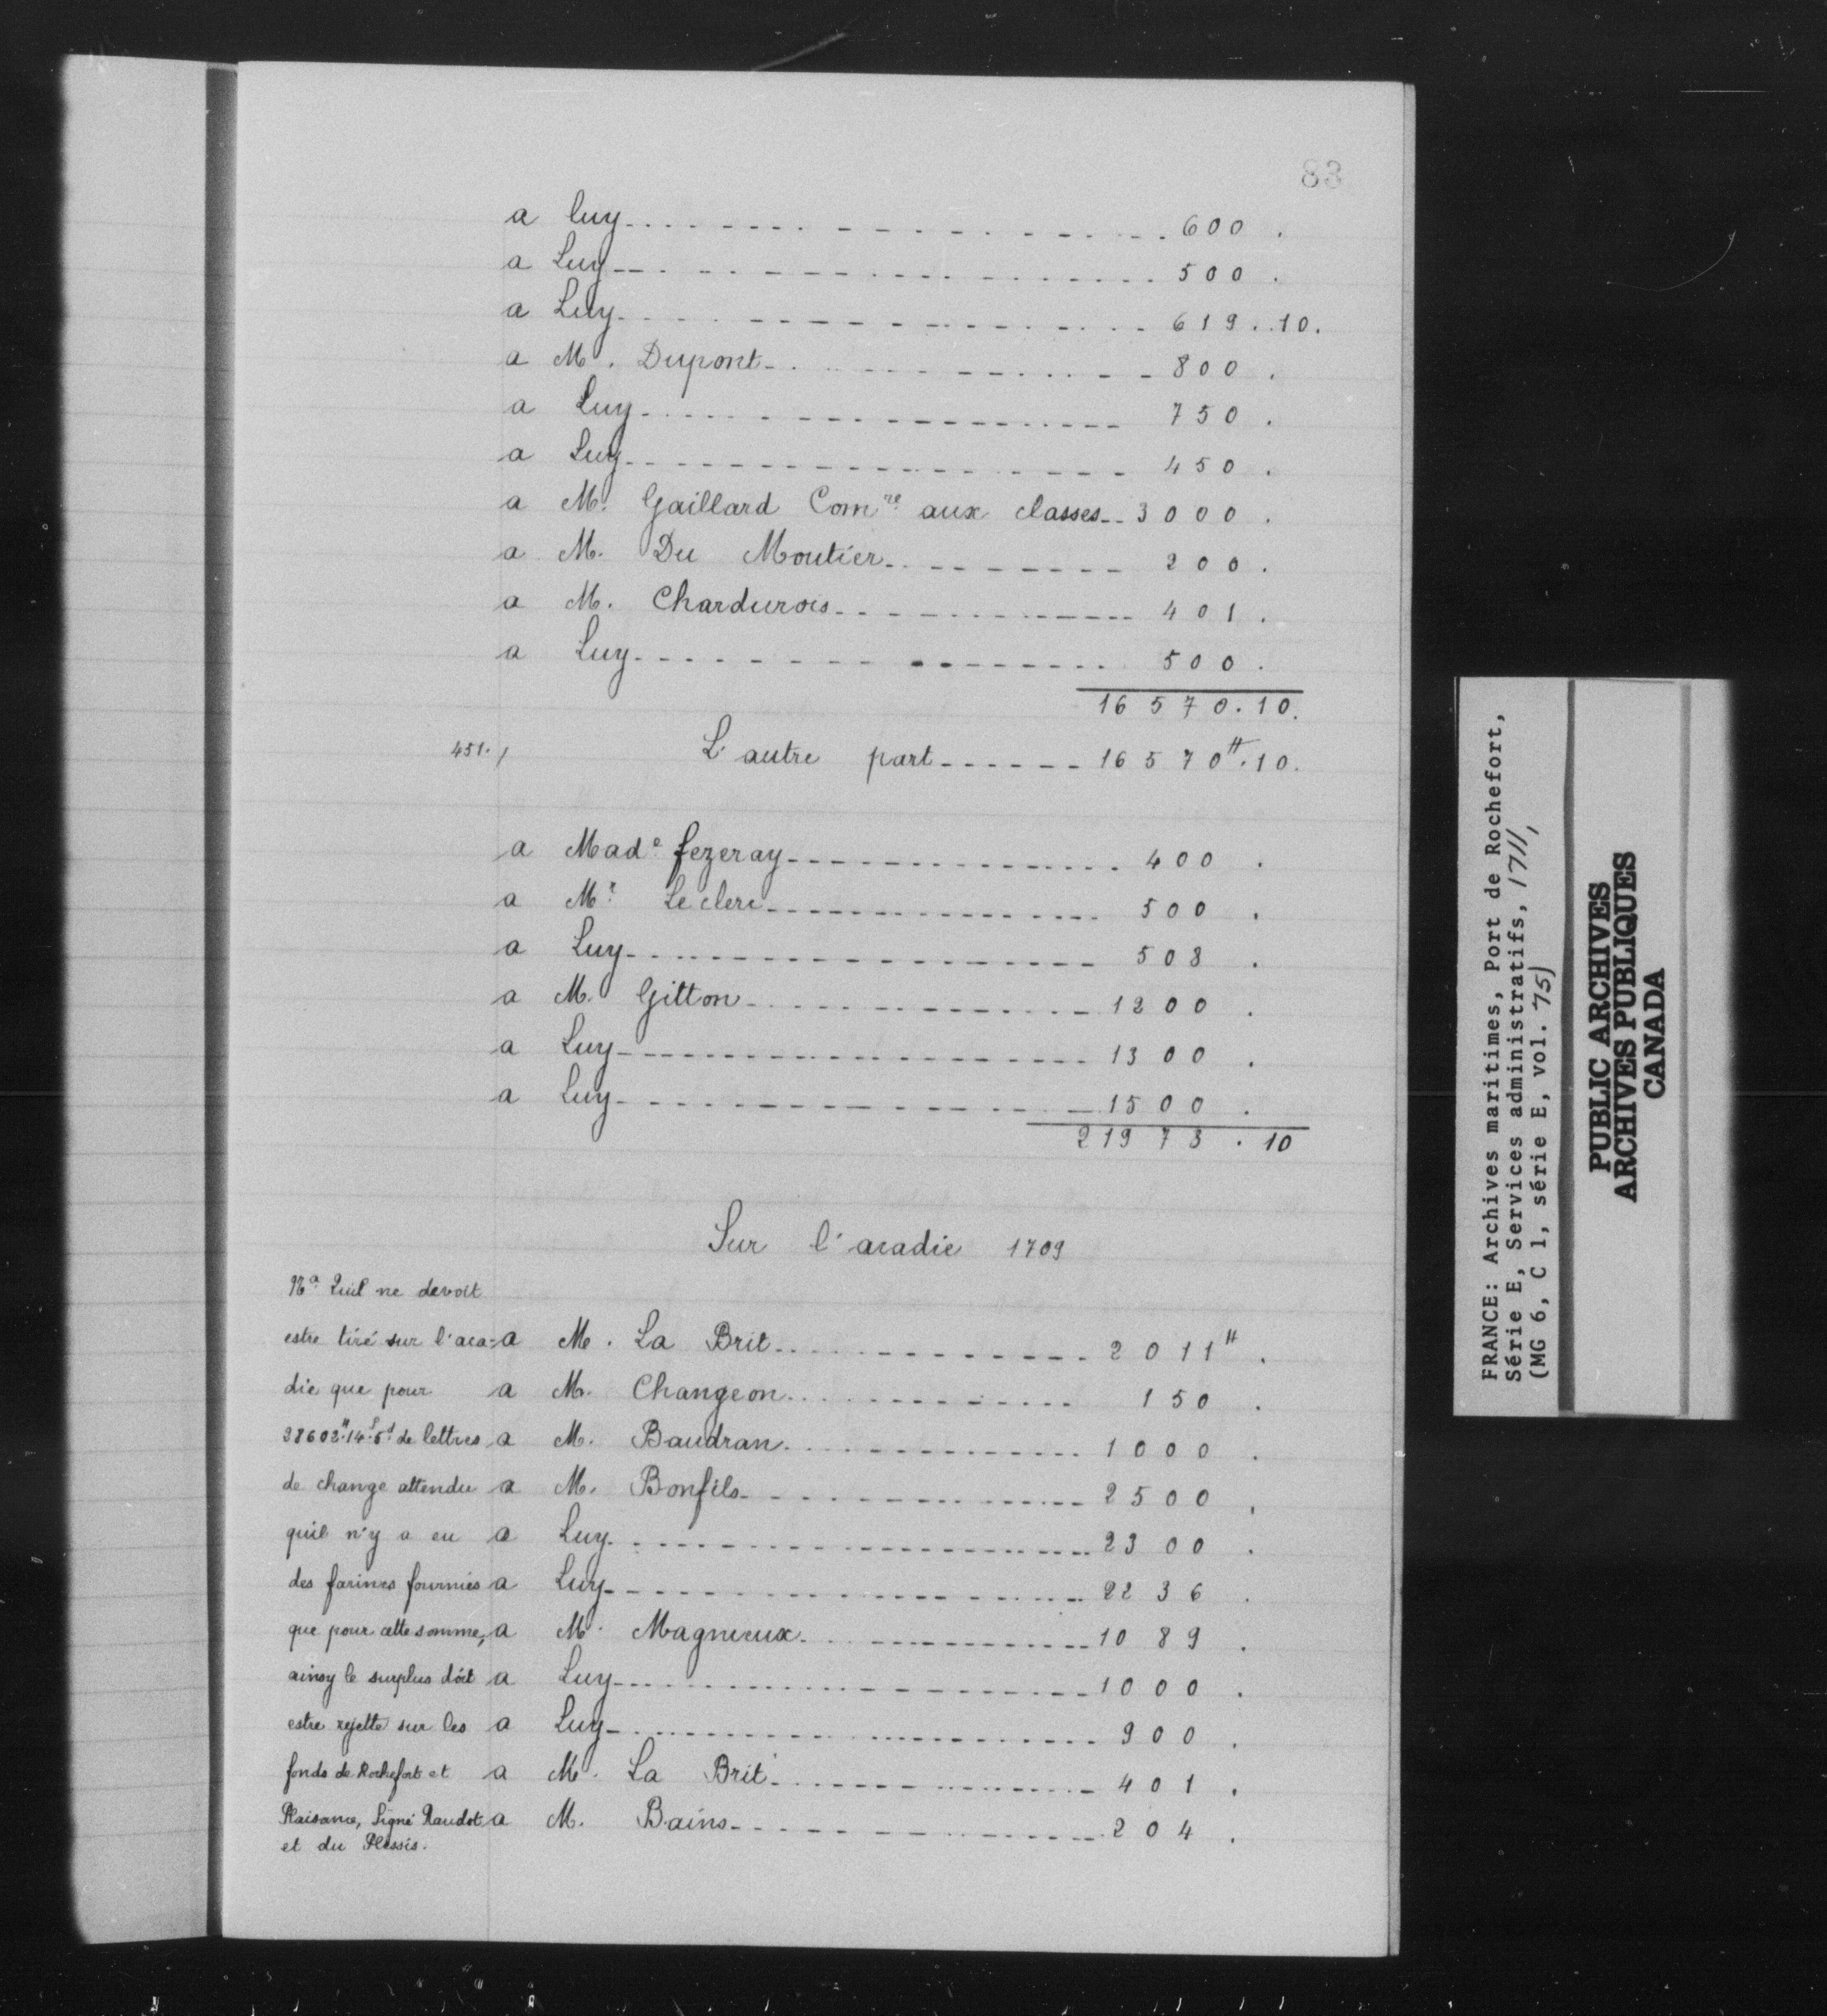 83
a luy 600.
a Luy 500.
a Luy 619.10.
a M. Dupont 800.
a Luy 750.
a Luy 450.
a M. Gaillard Com.re aux classes 3000.
a M. Du Moutier 200.
a M. Chardurois 401.
a Luy 500.
16570.10.
451./ L'autre part 16570#.10.
a Made. fezeray 400.
a Mr. Le clerc 500.
a Luy 508.
a M. Gitton 1200.
a Luy 1300.
a Luy 1500.
21973.10
Sur l'acadie 1709
Na. Quil ne devoit
estre tiré sur l'aca=
die que pour
38602#.14s.5d. de lettres
de change attendu
quil n'y a eu
des farines fournies
que pour cette somme,
ainsy le surplus doit
estre rejetté sur les
fonds de Rochefort et
Plaisance, Signé Raudot
et du Plessis.
a M. La Brit 2011#.
a M. Changeon 150.
a M. Baudran 1000.
a M. Bonfils 2500.
a Luy 2300.
a Luy 2236.
a M. Magnieux 1089.
a Luy 1000.
a Luy 900.
a M. La Brit 401.
a M. Bains 204.
FRANCE: Archives maritimes, Port de Rochefort,
Série E, Services administratifs, 1711,
(MG 6, C 1, série E, vol. 75)
PUBLIC ARCHIVES
ARCHIVES PUBLIQUES
CANADA